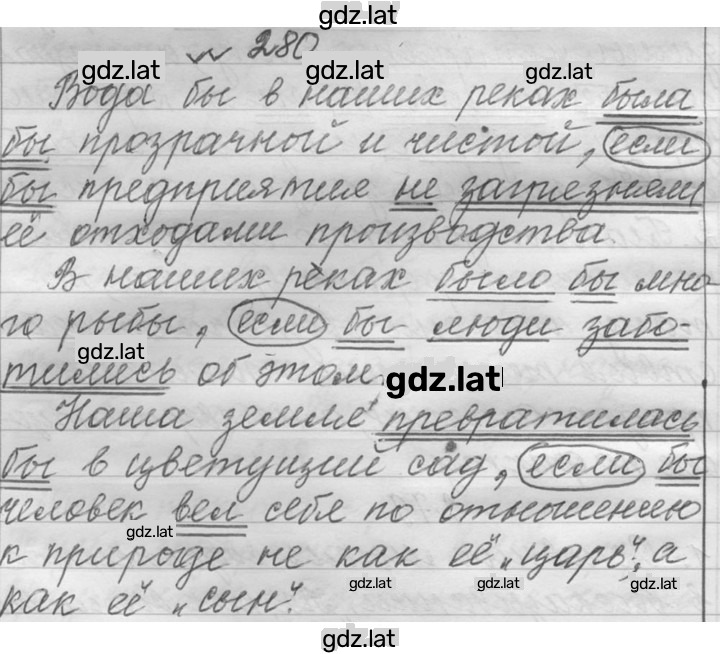 gdz.lat
№ 280
gdz.lat gdz.lat gdz.lat
Вода бы в наших реках была
бы прозрачной и чистой, если
бы предприятие не загрезнели
её отходами производства
В наших реках было бы мно
го рыбы, если бы люди забо-
gdz.lat
тились об этом.
gdz.lat
Наша земля превратилась
бы в цветущий сад, если бы
человек вел себя по отношению
gdz.lat
к природе не как её „царь“, а
gdz.lat gdz.lat gdz.lat
как её „сын“.
gdz.lat